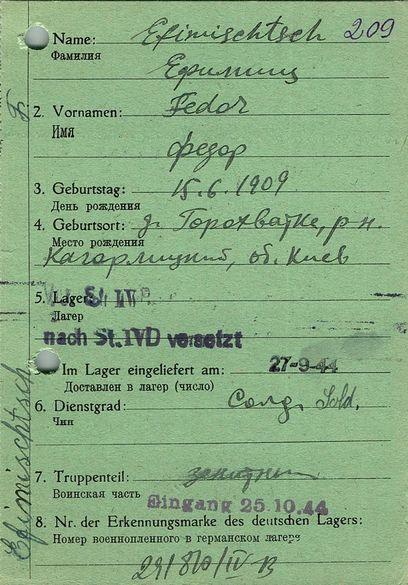 Name: Efimischtsch 209
Фамилия Ефимищ
2. Vornamen: Fedor
Имя федор
3. Geburtstag: 15.6.1909
День рождения
4. Geburtsort: д. Горохватке, р-н.
Место рождения
Кагорлицкий, об. Киев
5. Lager: St. IV B
Лагер
nach St. IVD versetzt
Im Lager eingeliefert am: 27-9-44
Доставлен в лагер (число)
6. Dienstgrad: Солд. Sold.
Чин
7. Truppenteil:
Воинская часть Eingang 25.10.44
8. Nr. der Erkennungsmarke des deutschen Lagers:
Номер военнопленного в германском лагере
/IV-B
Efimischtsch F.